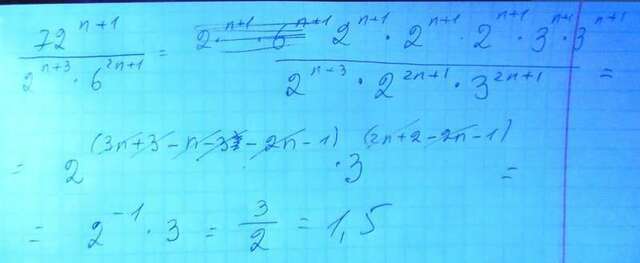 72^(n+1) / (2^(n+3) · 6^(2n+1)) = (2^(n+1) · 2^(n+1) · 2^(n+1) · 3^(n+1) · 3^(n+1)) / (2^(n+3) · 2^(2n+1) · 3^(2n+1)) =
= 2^(3n+3-n-3-2n-1) · 3^(2n+2-2n-1) =
= 2^(-1) · 3 = 3/2 = 1,5